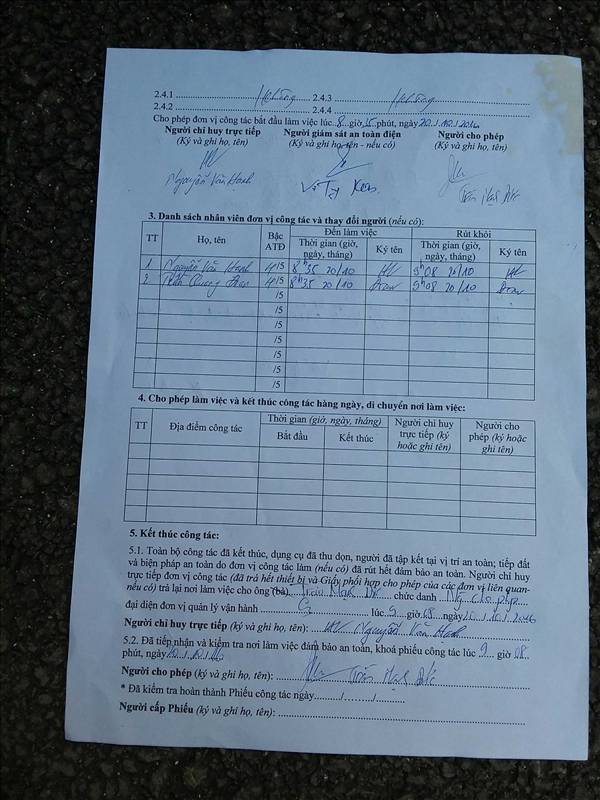 2.4.1 ........ Không ........ 2.4.3 ........ Không ........
2.4.2 ........ 2.4.4 ........
Cho phép đơn vị công tác bắt đầu làm việc lúc..8..giờ 35 phút, ngày 20./.10./2016
Người chỉ huy trực tiếp Người giám sát an toàn điện Người cho phép
(Ký và ghi họ, tên) (Ký và ghi họ, tên - nếu có) (Ký và ghi họ, tên)
Nguyễn Văn Hạnh Trần Mạnh
3. Danh sách nhân viên đơn vị công tác và thay đổi người (nếu có):
TT Họ, tên Bậc ATĐ Đến làm việc Rút khỏi
Thời gian (giờ, ngày, tháng) Ký tên Thời gian (giờ, ngày, tháng) Ký tên
1 Nguyễn Văn Hạnh 4/5 8h35 20/10 9h08 20/10
2 Quang 4/5 8h35 20/10 9h08 20/10
/5
/5
/5
/5
/5
/5
/5
4. Cho phép làm việc và kết thúc công tác hàng ngày, di chuyển nơi làm việc:
TT Địa điểm công tác Thời gian (giờ, ngày, tháng) Người chỉ huy trực tiếp (ký hoặc ghi tên) Người cho phép (ký hoặc ghi tên)
Bắt đầu Kết thúc
5. Kết thúc công tác:
5.1. Toàn bộ công tác đã kết thúc, dụng cụ đã thu dọn, người đã tập kết tại vị trí an toàn; tiếp đất
và biện pháp an toàn do đơn vị công tác làm (nếu có) đã rút hết đảm bảo an toàn. Người chỉ huy
trực tiếp đơn vị công tác (đã trả hết thiết bị và Giấy phối hợp cho phép của các đơn vị liên quan-
nếu có) trả lại nơi làm việc cho ông (bà)...Trần Mạnh... chức danh ..Ng cho phép....
đại diện đơn vị quản lý vận hành ........ lúc 9 giờ 08 ngày 20./.10./.2016
Người chỉ huy trực tiếp (ký và ghi họ, tên): ........ Nguyễn Văn Hạnh ........
5.2. Đã tiếp nhận và kiểm tra nơi làm việc đảm bảo an toàn, khoá phiếu công tác lúc 9.. giờ 08
phút, ngày 20./.10./.16
Người cho phép (ký và ghi họ, tên): ........ Trần Mạnh ........
* Đã kiểm tra hoàn thành Phiếu công tác ngày......../......../........
Người cấp Phiếu (ký và ghi họ, tên): ........